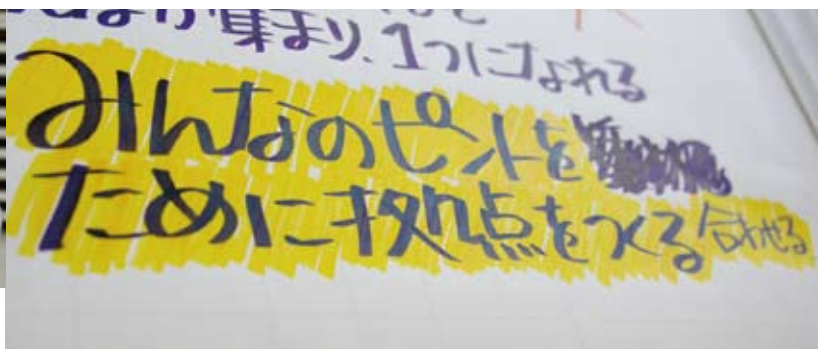 が集まり、1つになれる
みんなのピントを
ために拠点をつくる 合わせる